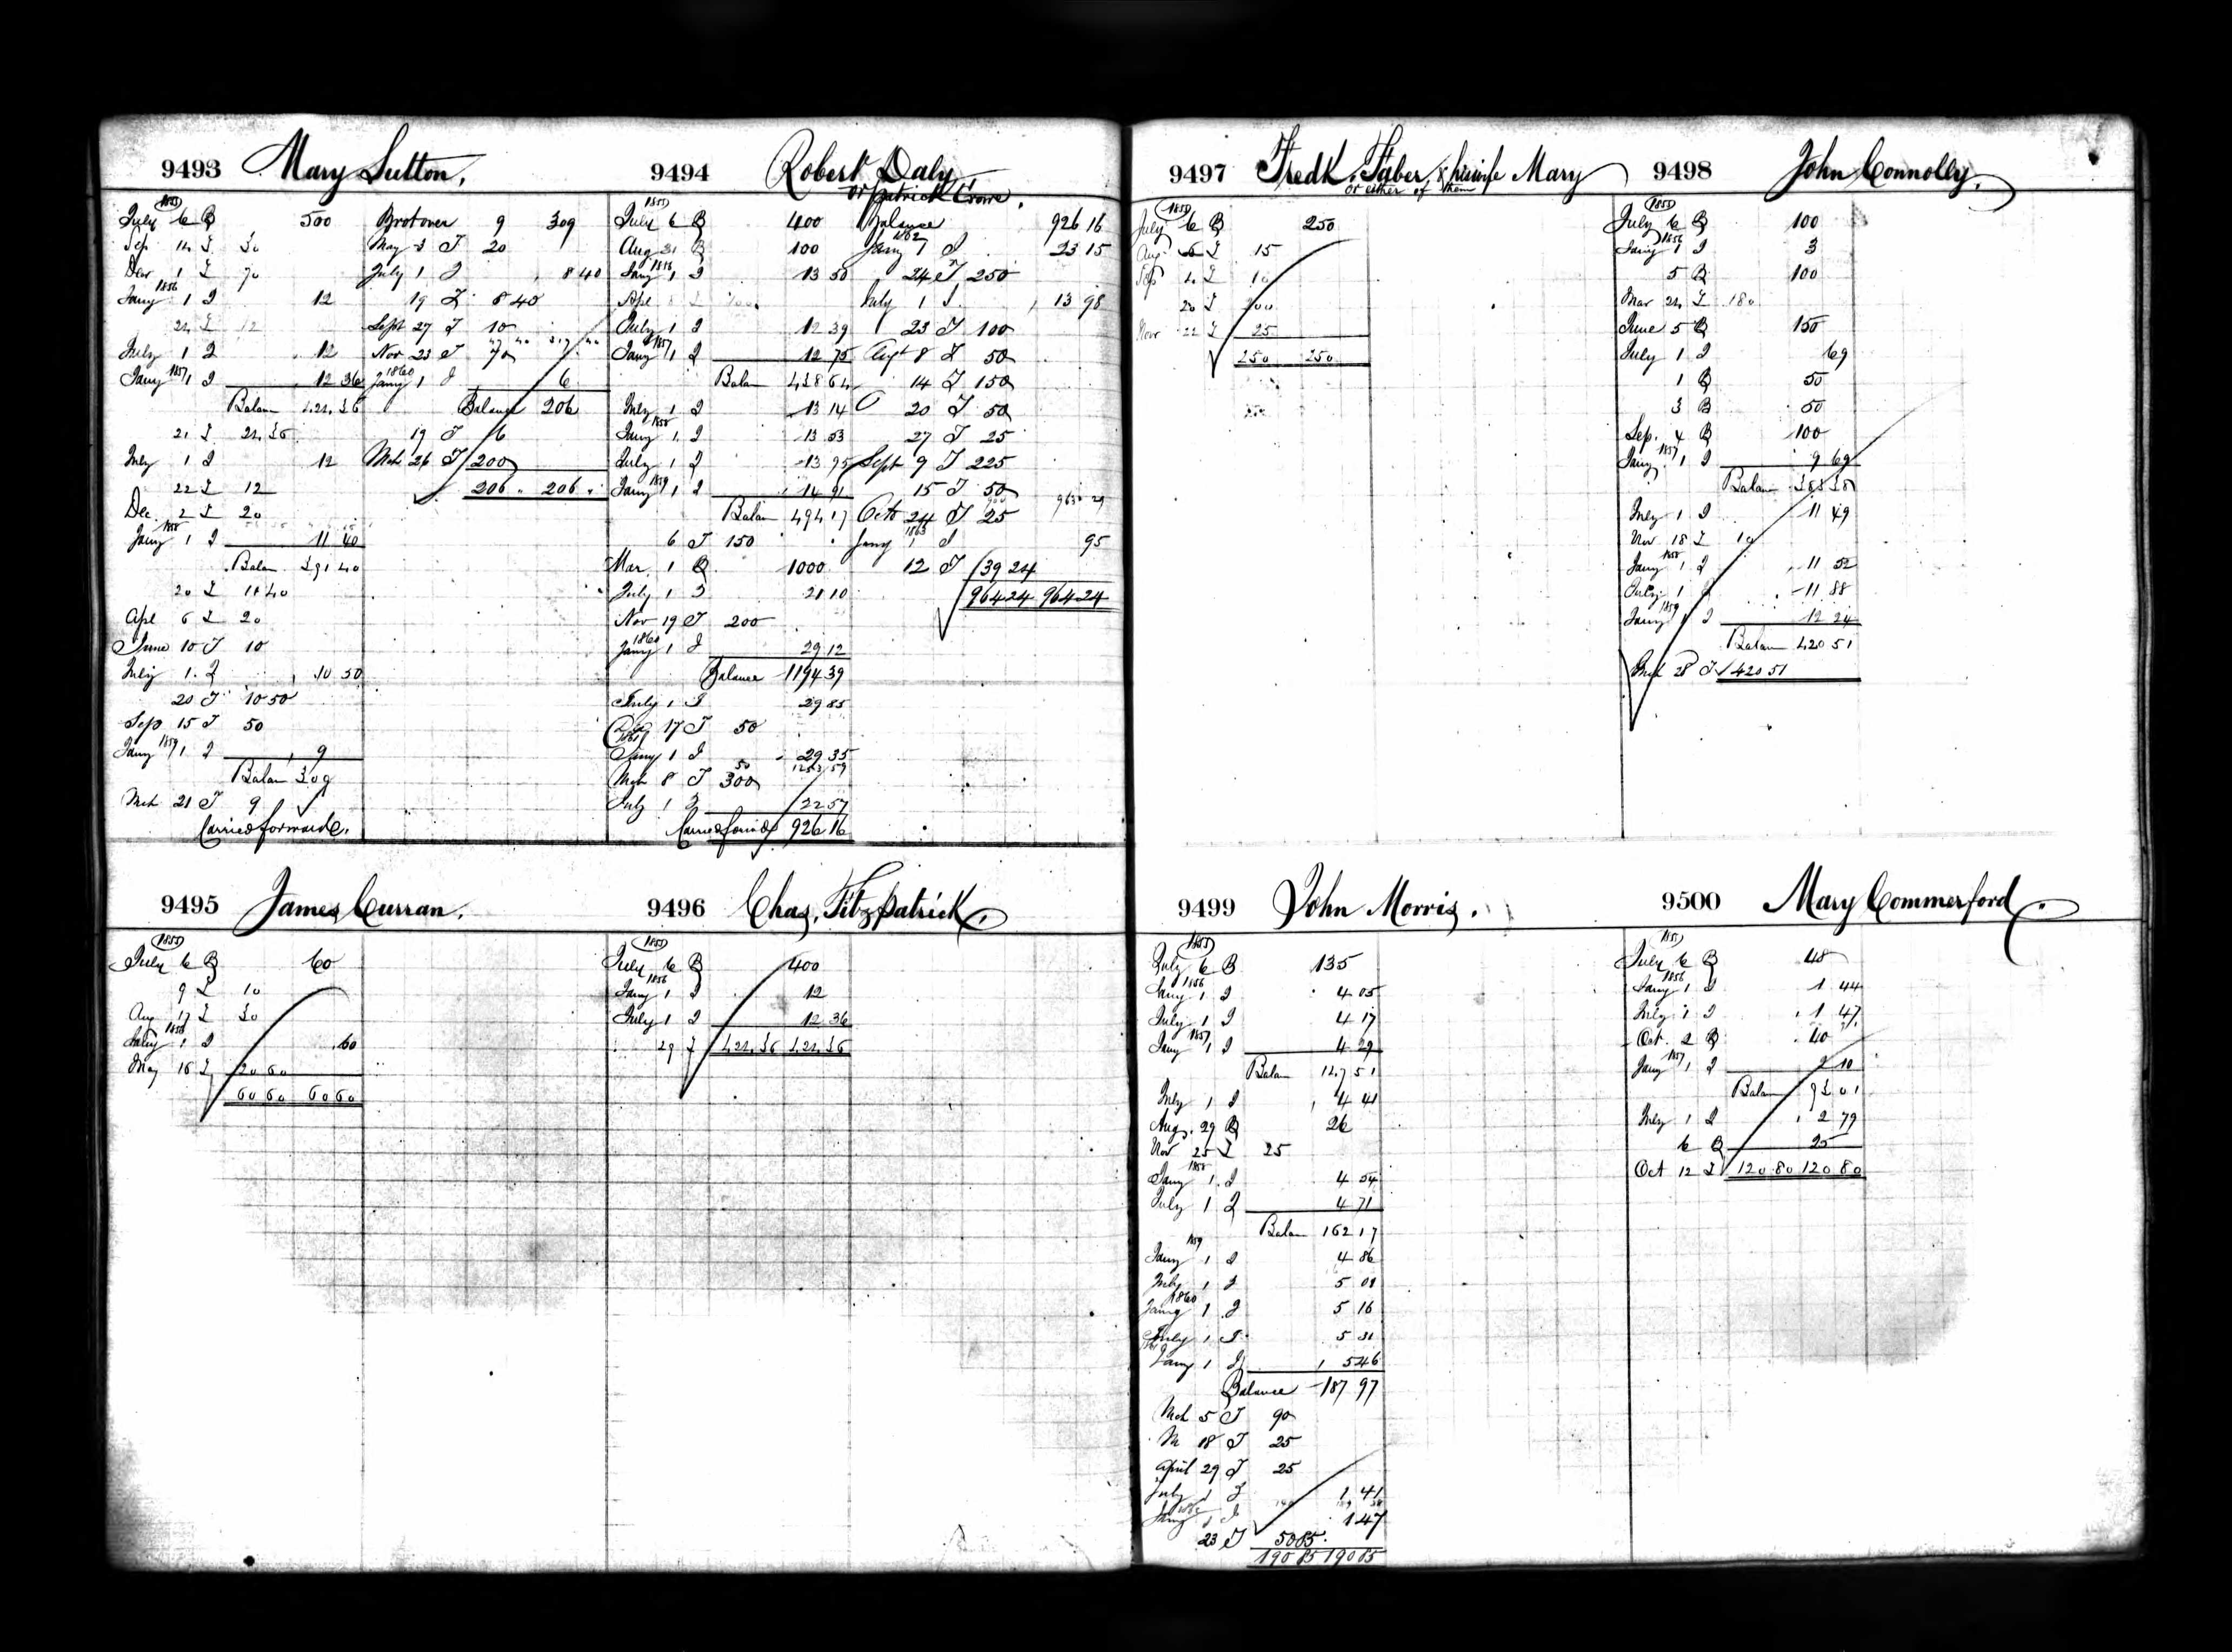 9493 Mary Sutton.
1855
July 6 B 500
Sep 14 I 30
Dear 1 I 70
1856
Jany 1 I 12
24 I 12
July 1 I 12
Jany 1857 1 I 12 36
Balan 424.36
21 I 24.36
July 1 I 12
22 I 12
Dec. 2 I 20
1858
Jany 1 I 11 40
Balan 391 40
20 I 11 40
Apl 6 I 20
June 10 I 10
July 1 I 10 50
20 I 10 50
Sep 15 I 50
Jany 1859 1 I 9
Balan 309
Mch 21 I 9
Carried forward.
Brot over 9 309
May 3 I 20
July 1 I 8 40
19 I 8 40
Sept 27 I 10
Nov 23 I 70
1860
Jany 1 I 6
Balance 206
19 I 6
Mch 26 I 200
206 206
9494 Robert Daly
or Patrick Crowe.
1855
July 6 B 400
Aug 31 B 100
1856
Jany 1 I 13 50
Apl
July 1 I 12 39
1857
Jany 1 I 12 75
Balan 438 64
July 1 I 13 14
1858
Jany 1 I 13 53
July 1 I 13 95
Jany 1859 1 I 14 91
Balan 494 17
6 I 150
Mar. 1 B 1000
July 1 I 21 10
Nov 19 I 200
1860
Jany 1 I 29 12
Balance 1194 39
July 1 I 29 85
17 I 50
1861
Jany 1 I 29 35
Mch 8 I 300
July 1 I 22 57
Carried forwd 926 16
Balance 926 16
1862
Jany 1 I 23 15
24 I 250
July 1 I 13 98
23 I 100
Augt 8 I 50
14 I 150
20 I 50
27 I 25
Sept 9 I 225
15 I 50
Octo 24 I 25 963 29
1863
Jany 1 I 95
12 I 39 24
964 24 964 24
9495 James Curran.
1855
July 6 B 60
9 I 10
Aug 17 I 30
1856
Jany 1 I .60
May 16 I 20 60
60 60 60 60
9496 Chas. Fitzpatrick.
1855
July 6 B 400
1856
Jany 1 I 12
July 1 I 12 36
29 I 424.36 424.36
9497 Fredk. Faber, & his wife Mary
or either of them
1855
July 6 B 250
Aug 6 I 15
Sep 4 I 10
20 I 200
Nov 22 I 25
250 250
9498 John Connolly.
1855
July 6 B 100
1856
Jany 1 I 3
5 B 100
Mar 24 I 180
June 5 B 150
July 1 I 69
1 B 50
3 B 50
Sep. 4 B 100
1857
Jany 1 I 9 69
Balan 383 38
July 1 I 11 49
Nov 18 I 10
1858
Jany 1 I 11 52
July 1 I 11 88
1859
Jany 1 I 12 24
Balan 420 51
Mch 28 I 420 51
9499 John Morris.
1855
July 6 B 135
1856
Jany 1 I 4 05
July 1 I 4 17
1857
Jany 1 I 4 29
Balan 147 51
July 1 I 4 41
Aug. 29 B 26
Nov 25 I 25
1858
Jany 1 I 4 54
July 1 I 4 71
Balan 162 17
1859
Jany 1 I 4 86
July 1 I 5 01
1860
Jany 1 I 5 16
July 1 I 5 31
1861
Jany 1 I 5 46
Balance 187 97
Mch 5 I 90
M 18 I 25
April 29 I 25
July 1 I 1 41
1862
Jany 1 I 1 47
23 I 50 85
190 85 190 85
9500 Mary Commerford.
1855
July 6 B 48
1856
Jany 1 I 1 44
July 1 I 1 47
Oct. 2 B 40
1857
Jany 1 I 2 10
Balan 93 01
July 1 I 2 79
6 B 25
Oct 12 I 120 80 120 80